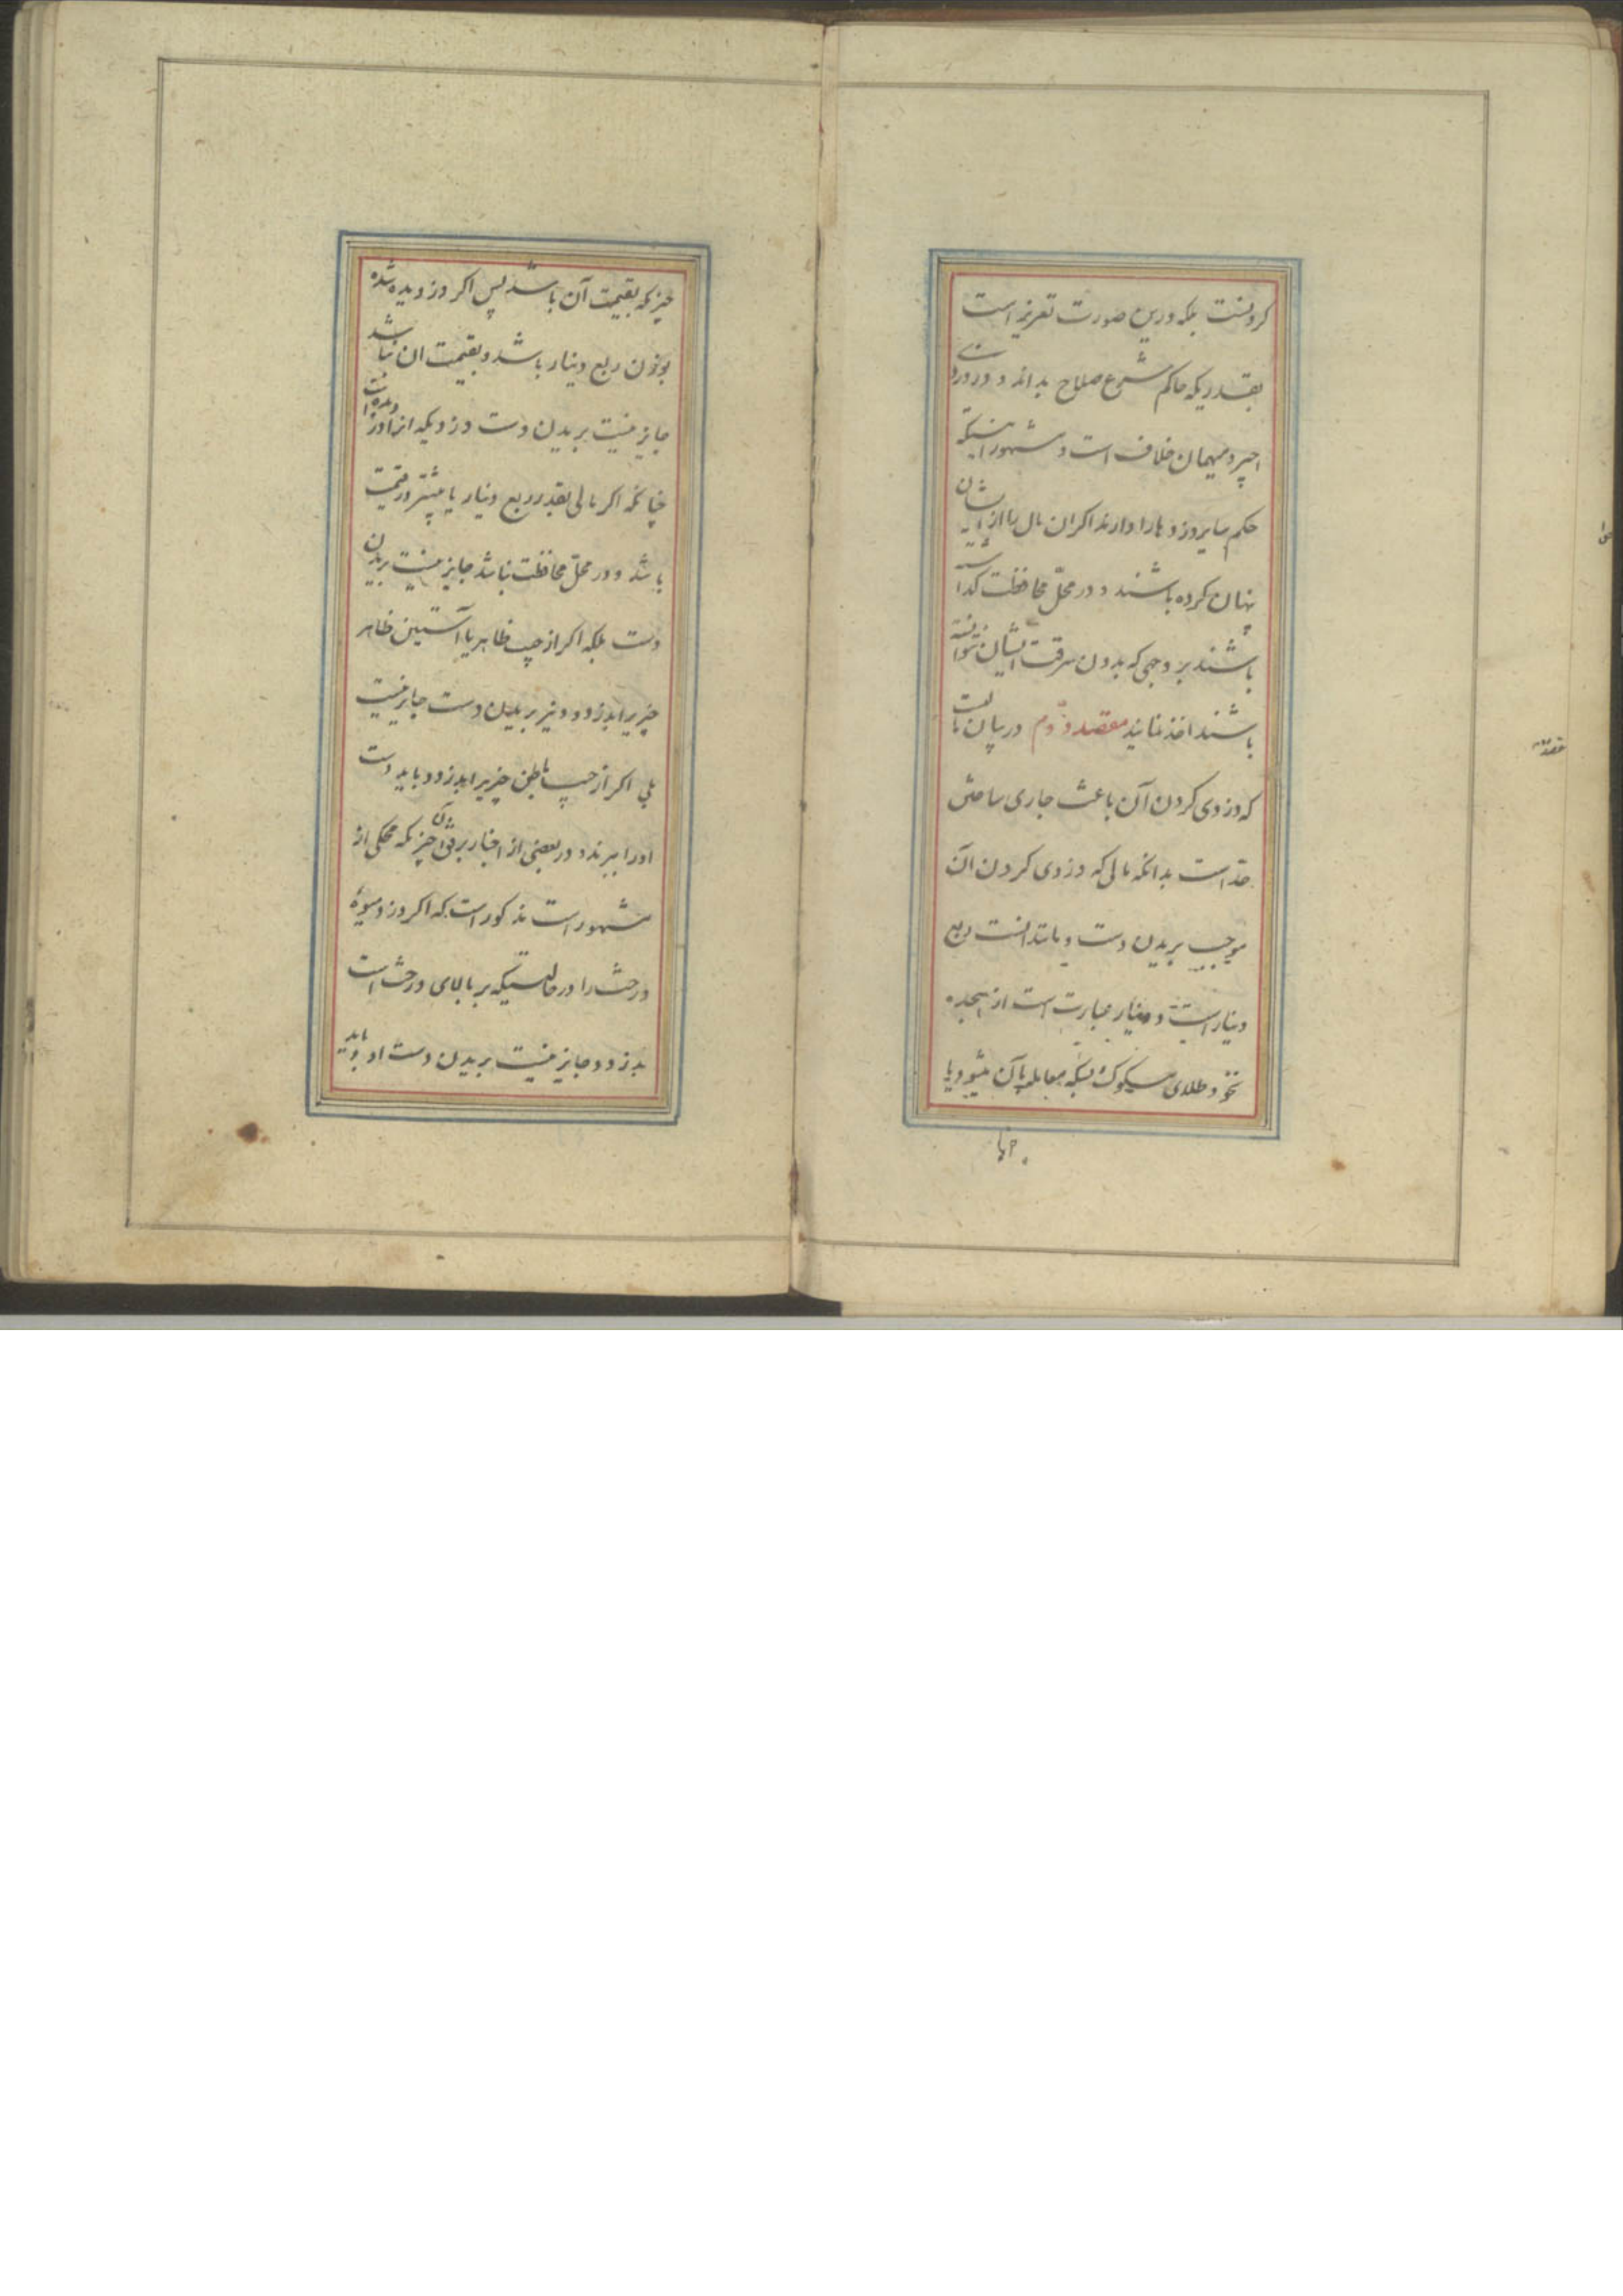 کردنست بلکه درین صورت تعزیر است
بقدریکه حاکم شرع صلاح بداند و در دزدی
اجیر و میهمان خلاف است و مشهور اینستکه
حکم سایر دزدها را دارند اکر ان مال را از ایشان
پنهان کرده باشند و در محلّ محافظت کذاشته
باشند بر وجهی که بدون سرقت ایشان نتوانسته
باشند اخذ نمایند مقصد دوّم در بیان مالیست
که دزدی کردن آن باعث جاری ساختن
حدّ است بدانکه مالی که دزدی کردن آن
موجب بریدن دست و مانند انست ربع
دینار است و دینار عبارت است از هیجده
نخود طلای مسکوک بسکه معامله بآن میشود یا
چیزیکه بقیمت آن باشد پس اکر دزدیده شده
بوزن ربع دینار باشد و بقیمت ان نباشد
جایز نیست بریدن دست دزدیکه انرا دزدیده است
چنانکه اکر مالی بقدر ربع دینار یا بیشتر در قیمت
باشد و در محلّ محافظت نباشد جایز نیست بریدن
دست بلکه اکر از جیب ظاهر یا آستین ظاهر
چیزیرا بدزدد نیز بریدن دست جایز نیست
بلی اکر از جیب باطن چیزیرا بدزدد باید دست
او را ببرند و در بعضی از اخبار بر وفق آن چیزیکه محکی از
مشهور است مذکور است که اکر دزد میوهٔ
درخت را در حالتیکه بر بالای درخت است
بدزدد جایز نیست بریدن دست او و باید